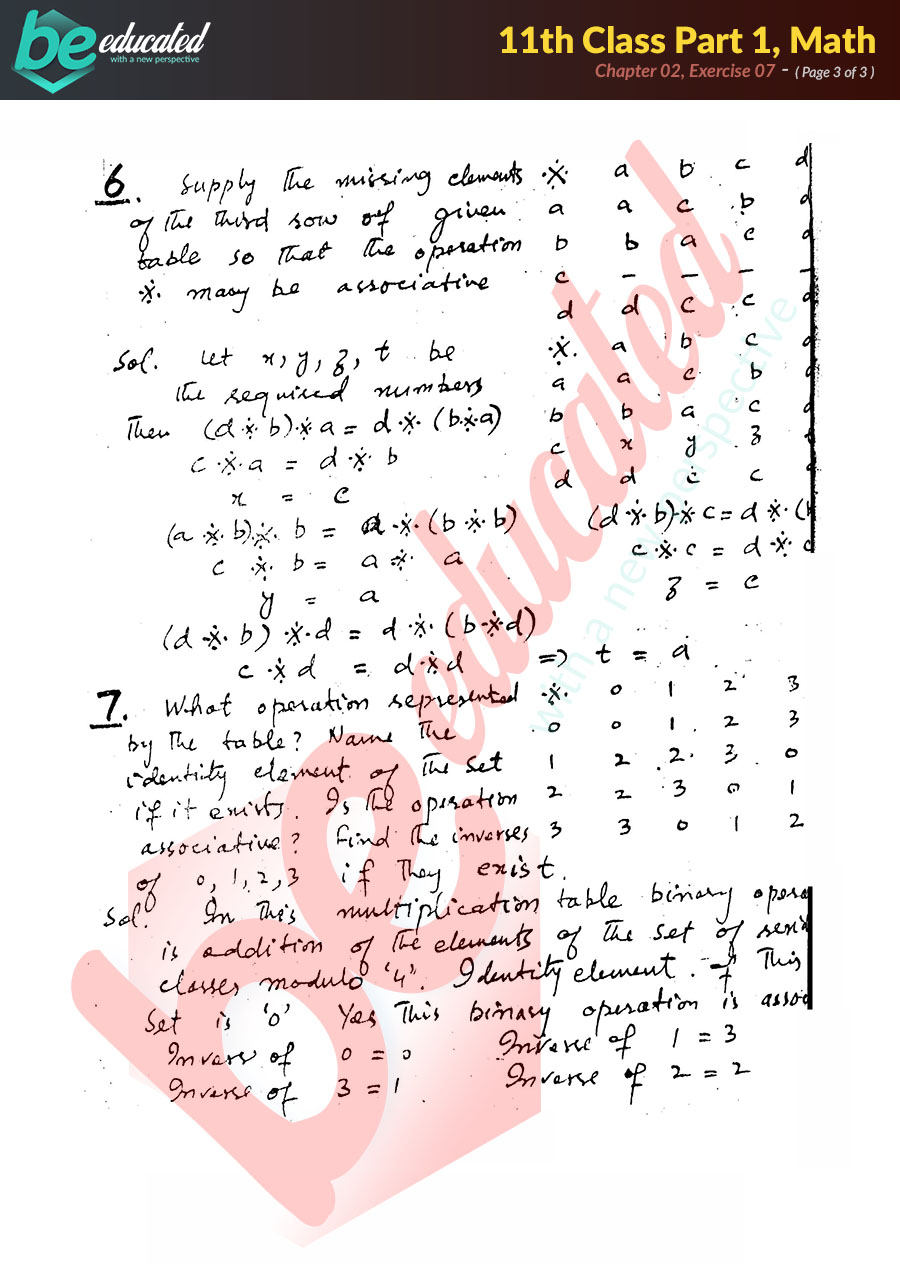 be educated
with a new perspective
11th Class Part 1, Math
Chapter 02, Exercise 07 - ( Page 3 of 3 )
6. Supply the missing elements
of the third row of given
table so that the operation
※ may be associative
※ a b c d
a a c b d
b b a c d
c – – – –
d d c c d
Sol. Let x, y, z, t be
the required numbers
※ a b c d
a a c b d
b b a c d
c x y z
d d c c
Then (d ※ b) ※ a = d ※ (b ※ a)
c ※ a = d ※ b
x = c
(a ※ b) ※ b = a ※ (b ※ b)
c ※ b = a ※ a
y = a
(d ※ b) ※ c = d ※ (
c ※ c = d ※ c
z = c
(d ※ b) ※ d = d ※ (b ※ d)
c ※ d = d ※ d => t = d
7. What operation represented
by the table? Name the
identity element of the set
if it exists. Is the operation
associative? Find the inverses
of 0, 1, 2, 3 if they exist.
※ 0 1 2 3
0 0 1 2 3
1 2 2 3 0
2 2 3 0 1
3 3 0 1 2
Sol. In this multiplication table binary opera
is addition of the elements of the set of
classes modulo '4'. Identity element of This
Set is '0' Yes This binary operation is assoc
Invers of 0 = 0 Inverse of 1 = 3
Inverse of 3 = 1 Inverse of 2 = 2
be educated
with a new perspective